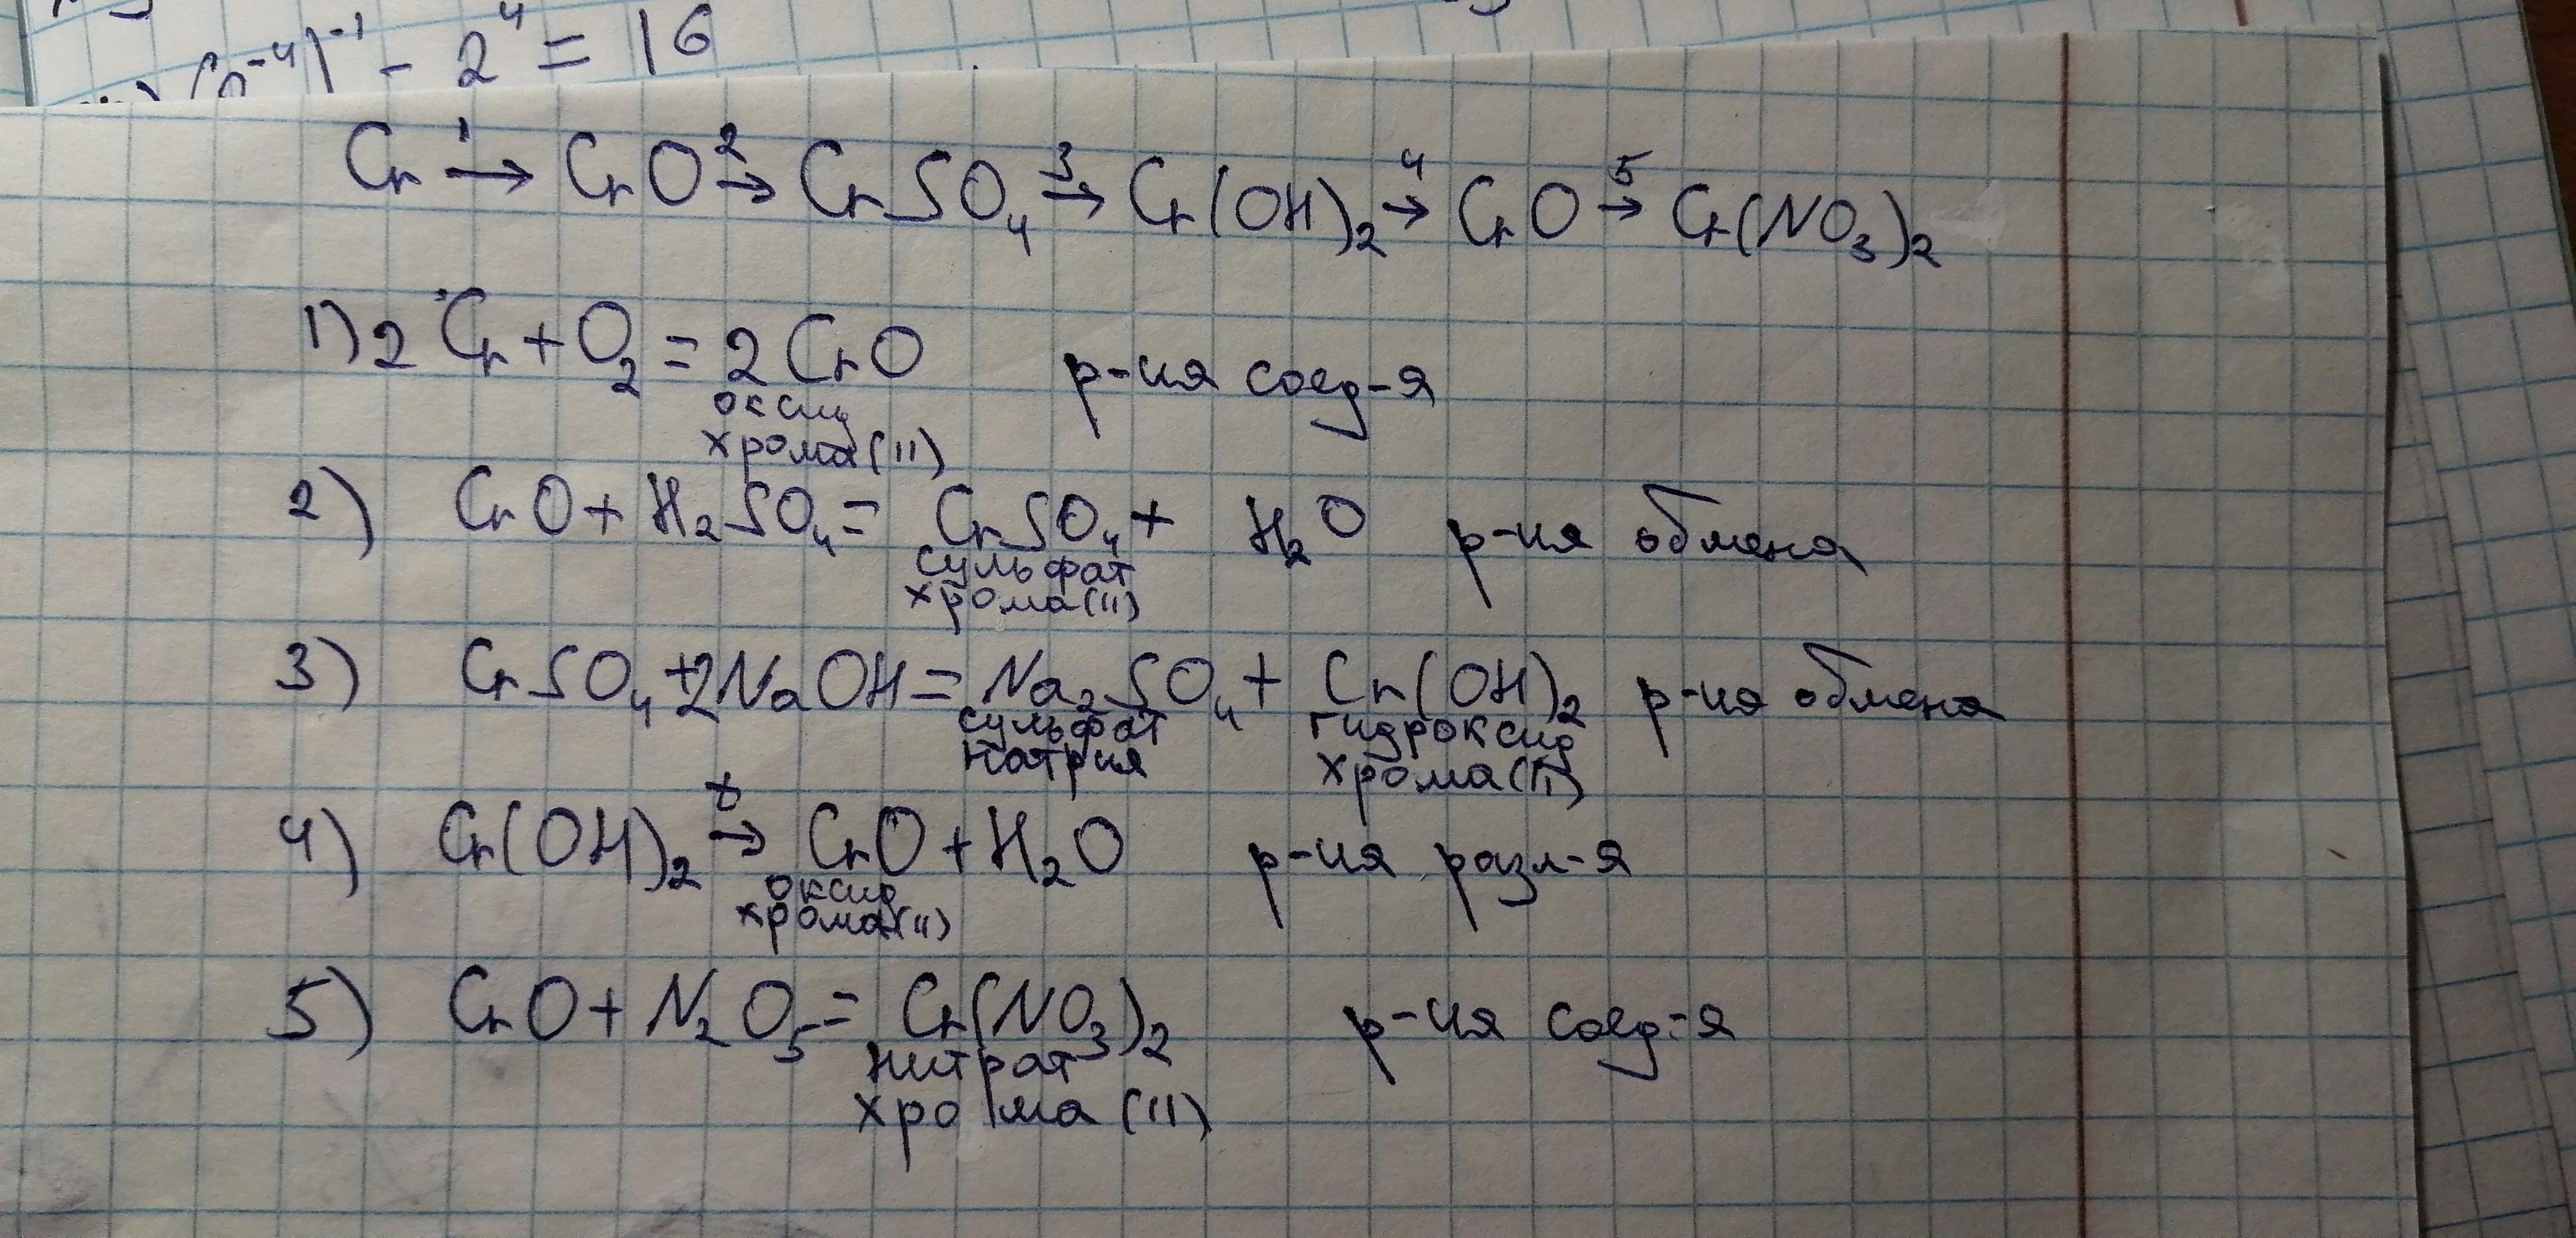 - 2⁴ = 16
Cr →¹ CrO →² CrSO₄ →³ Cr(OH)₂ →⁴ CrO →⁵ Cr(NO₃)₂
1) 2 Cr + O₂ = 2 CrO р-ия соед-я
оксид
хрома (II)
2) CrO + H₂SO₄ = CrSO₄ + H₂O р-ия обмена
сульфат
хрома (II)
3) CrSO₄ + 2NaOH = Na₂SO₄ + Cr(OH)₂ р-ия обмена
сульфат гидроксид
натрия хрома (II)
4) Cr(OH)₂ →ᵗ CrO + H₂O р-ия разл-я
оксид
хрома (II)
5) CrO + N₂O₅ = Cr(NO₃)₂ р-ия соед-я
нитрат
хрома (II)